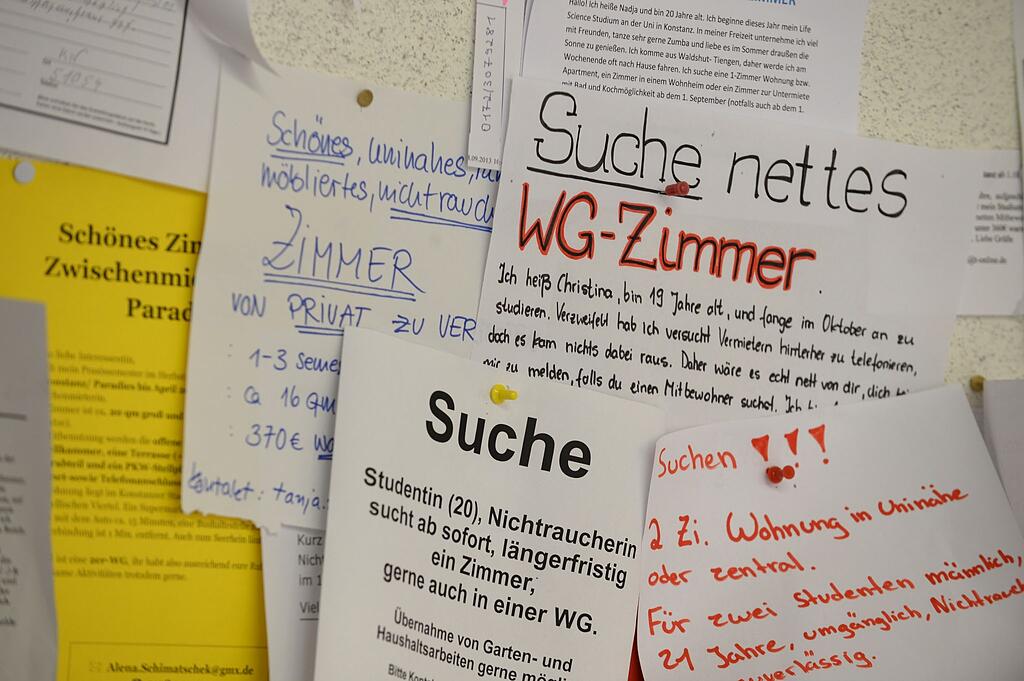 Hallo! Ich heiße Nadja und bin 20 Jahre alt. Ich beginne dieses Jahr mein Life
Science Studium an der Uni in Konstanz. In meiner Freizeit unternehme ich viel
mit Freunden, tanze sehr gerne Zumba und liebe es im Sommer draußen die
Sonne zu genießen. Ich komme aus Waldshut- Tiengen, daher werde ich am
Wochenende oft nach Hause fahren. Ich suche eine 1-Zimmer Wohnung bzw.
Apartment, ein Zimmer in einem Wohnheim oder ein Zimmer zur Untermiete
mit Bad und Kochmöglichkeit ab dem 1. September (notfalls auch ab dem 1.
0172/3079281
.09.2013
Schönes, uninahes,
möbliertes, nichtrauch
ZIMMER
VON PRIVAT ZU VER
: 1-3 Seme
: ca 16 qm
: 370€
Kontakt: tanja.
Suche nettes
WG-Zimmer
Ich heiß Christina, bin 19 Jahre alt, und fange im Oktober an zu
studieren. Verzweifelt hab ich versucht Vermietern hinterher zu telefonieren,
doch es kam nichts dabei raus. Daher wäre es echt nett von dir, dich
mir zu melden, falls du einen Mitbewohner suchst. Ich
Schönes Zi
Zwischenmi
Parad
liebe Interessentin,
2er-WG, ihr habt also ausreichend eure
Aktivitäten trotzdem gerne.
Alena.Schimatschek@gmx.de
Kurz
Nicht
im 1
Viel
Suche
Studentin (20), Nichtraucherin
sucht ab sofort, längerfristig
ein Zimmer,
gerne auch in einer WG.
Übernahme von Garten- und
Haushaltsarbeiten gerne mögli
Bitte Kont
Suchen !!!
2 Zi. Wohnung in Uninähe
oder zentral.
Für zwei Studenten männlich,
21 Jahre, umgänglich, Nichtrauch
uverlässig.
Liebe Grüße